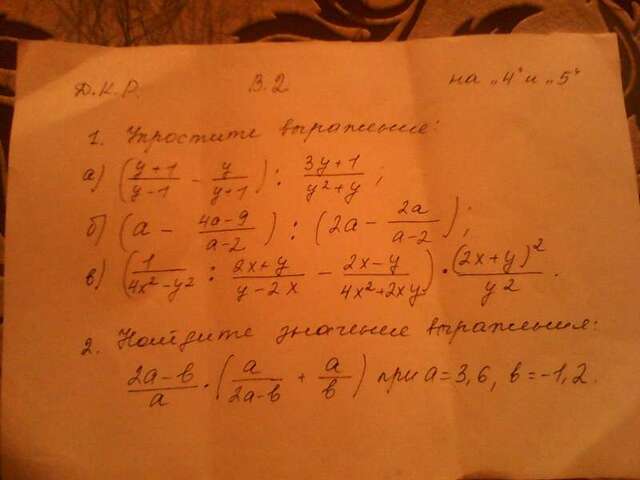 Д.К.Р. В.2 на „4" и „5"
1. Упростите выражение:
а) ((y+1)/(y-1) - y/(y+1)) : (3y+1)/(y²+y);
б) (a - (4a-9)/(a-2)) : (2a - 2a/(a-2));
в) (1/(4x²-y²) : (2x+y)/(y-2x) - (2x-y)/(4x²+2xy)) · (2x+y)²/y².
2. Найдите значение выражения:
(2a-b)/a · (a/(2a-b) + a/b) при a=3,6, b=-1,2.